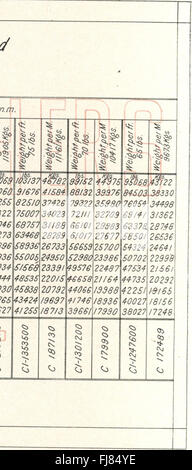 d
m.m.
Weight per ft. 75 lbs.
Weight per M. 11161 Kgs.
Weight per ft. 70 lbs.
Weight per M. 10417 Kgs.
Weight per ft. 65 lbs.
Weight per M. 9673 Kgs.
069 103137 46782 99152 44975 95068 43122
760 91676 41584 88132 39976 84503 38330
255 82510 37426 79322 35980 76055 34498
122 75007 34023 72111 32709 69141 31362
946 68757 31188 66101 29983 63378 28748
896 58936 26733 56659 25700 54324 24641
936 55005 24950 52980 23986 50702 22999
934 51568 23391 49576 22487 47534 21561
444 48535 22015 46658 21164 44735 20292
930 45838 20792 44066 19988 42251 19165
765 43424 19697 41746 18936 40027 18156
627 41255 18713 39661 17990 38027 17248
C1-1353500
C 187130
C1-1301200
C 179900
C1-1247600
C 172489
alamy
FJ84YE